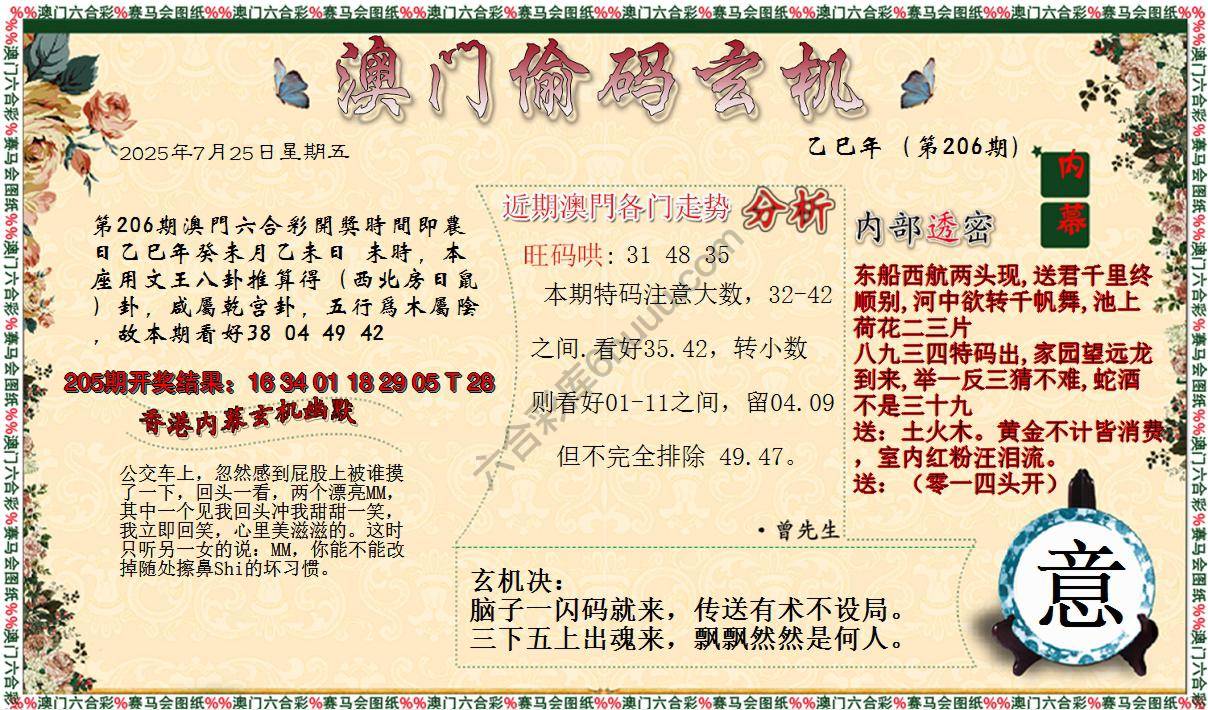 %%澳门六合彩%赛马会图纸%%澳门六合彩%赛马会图纸%%澳门六合彩%赛马会图纸%%澳门六合彩%赛马会图纸%%澳门六合彩%赛马会图纸%%澳门六合彩%赛马会图纸%%
澳门偷码玄机
2025年7月25日星期五
乙巳年 (第206期)
内幕
第206期澳門六合彩開獎時間即農
日乙巳年癸未月乙未日 未時，本
座用文王八卦推算得（西北房日鼠
）卦，咸屬乾宫卦，五行爲木屬陰
，故本期看好38 04 49 42
205期开奖结果：16 34 01 18 29 05 T 28
香港内幕玄机幽默
公交车上，忽然感到屁股上被谁摸
了一下，回头一看，两个漂亮MM，
其中一个见我回头冲我甜甜一笑，
我立即回笑，心里美滋滋的。这时
只听另一女的说：MM，你能不能改
掉随处擦鼻Shi的坏习惯。
近期澳門各门走势 分析
旺码哄: 31 48 35
本期特码注意大数，32-42
之间.看好35.42，转小数
则看好01-11之间，留04.09
但不完全排除 49.47。
·曾先生
内部透密
东船西航两头现,送君千里终
顺别,河中欲转千帆舞,池上
荷花二三片
八九三四特码出,家园望远龙
到来,举一反三猜不难,蛇酒
不是三十九
送：土火木。黄金不计皆消费
，室内红粉汪泪流。
送：（零一四头开）
玄机决：
脑子一闪码就来，传送有术不设局。
三下五上出魂来，飘飘然然是何人。
意